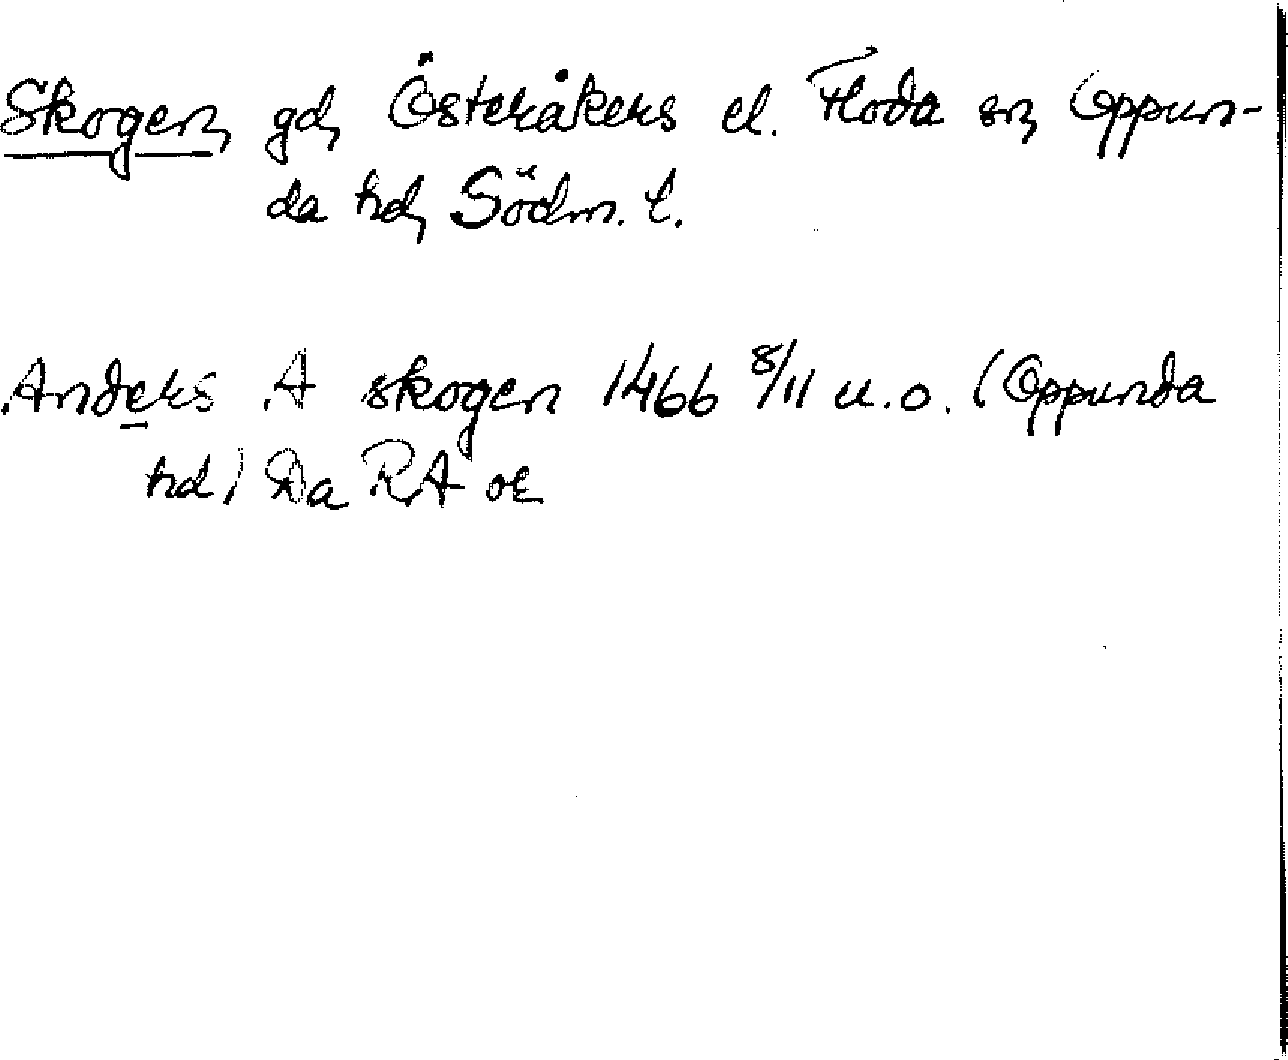 Skogen, gd, Österåkers el. Floda sn, Oppun-
da hd, Södm. l.
Anders A skogen 1466 8/11 u.o. (Oppunda
hd) Da RA or